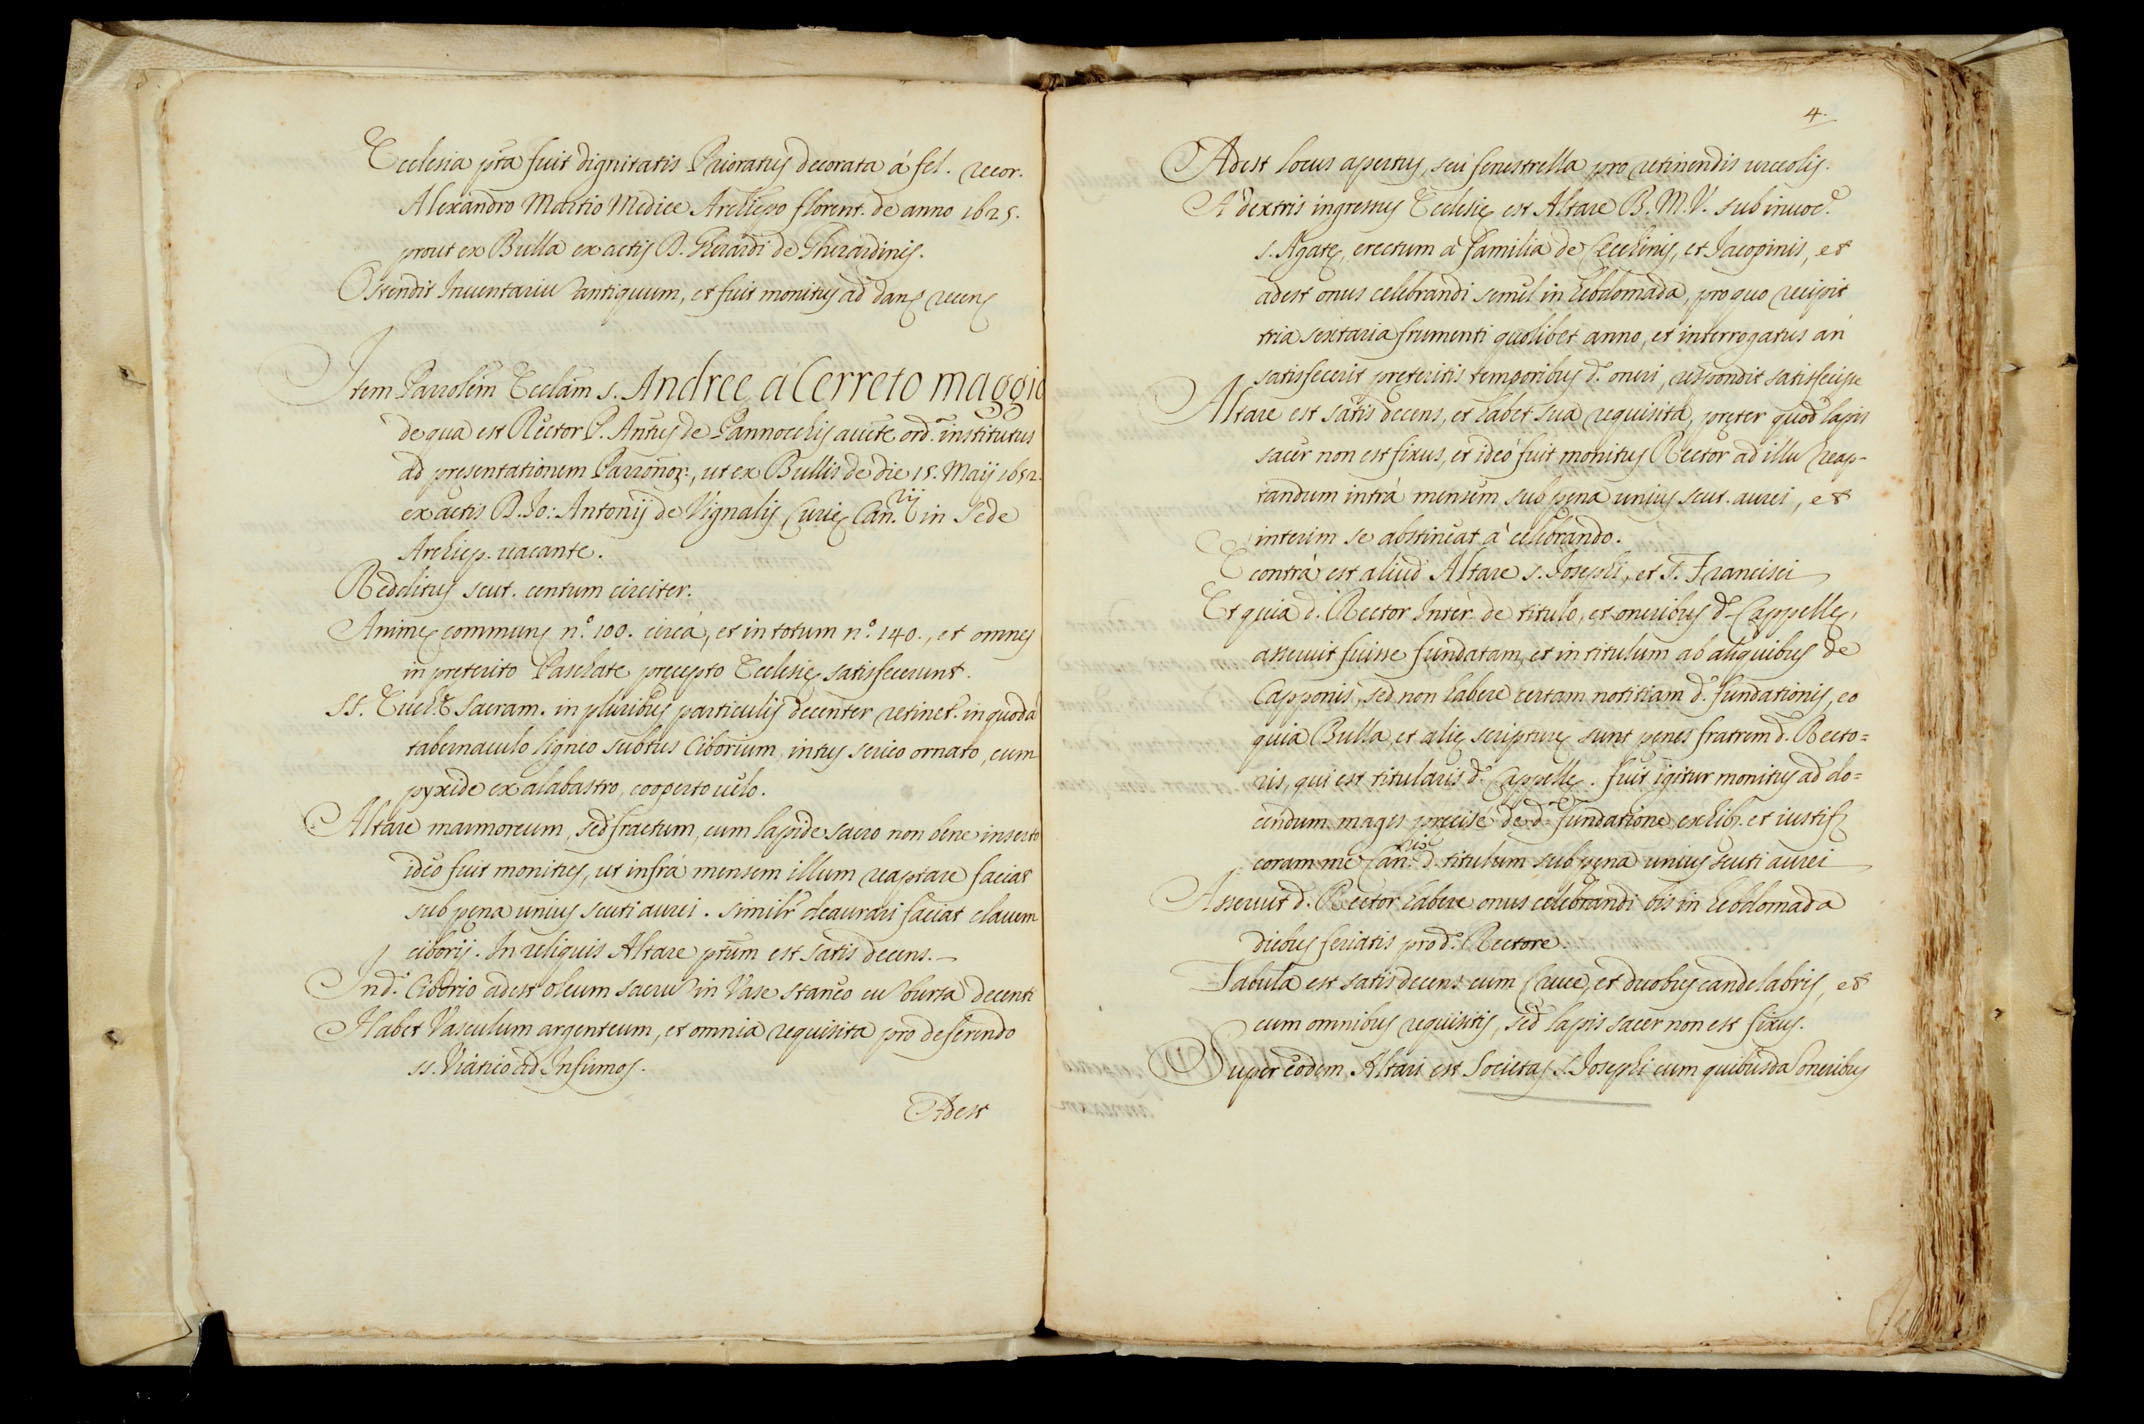 Ecclesia pta fuit dignitatis Prioratus decorata á fel. recor.
Alexandro Martio Medice Archiepo florent. de anno 1625.
prout ex Bulla ex actis D. Gherardi de Gherardinis.
Ostendit Inuentariũ antiquum, et fuit monitus ad dand recens
Item Parrolem Ecclam s. Andree a Cerreto maggio
de qua est Rector P. Antus de Pannocchijs aucte ord. institutus
ad presentationem Parronor:, ut ex Bullis de die 15. Maij 1652.
ex actis D. Io: Antonij de Vignalis Curię Can.rij in Sede
Archiep. uacante.
Redditus scut. centum circiter.
Animę communę n.º 100. circá, et in totum n.º 140., et omnes
in preterito Paschate pręcepto Ecclesię satisfecerunt.
SS. Euch.e Sacram. in pluribus particulis decenter retinet. in quodã
tabernaculo ligneo subtus Ciborium, intus serico ornato, cum
pyxide ex alabastro, cooperto uelo.
Altare marmoreum, sed fractum, cum lapide sacro non bene inserto
ideo fuit monitus, ut infrá mensem illum reaptare faciat
sub pena unius scuti aurei. similr deaurari faciat clauem
ciborij. In reliquis Altare ptum est satis decens.
In d.º Ciborio adest oleum sacrũ in Vase staneo cũ bursa decenti
Habet Vasculum argenteum, et omnia requisita pro deferendo
ss. Viatico ad Infirmos.
Adest
4.
Adest locus apertus, seu fenestrella pro retinendis urceolis.
A' dextris ingressus Ecclesię est Altare B. M. V. sub inuoc.e
s. Agatę, erectum á familia de Cecchinis, et Iacopinis, et
adest onus celebrandi semel in hebdomada, pro quo recipit
tria sextaria frumenti quolibet anno, et interrogatus an
satisfecerit pręteritis temporibus d.º oneri, respondit satisfecisse
Altare est satis decens, et habet sua requisita, pręter quod lapis
sacer non est fixus, et ideò fuit monitus Rector ad illũ reap-
tandum intrá mensem sub pena unius scut. aurei, et
interim se abstineat á celebrando.
E contrá est aliud Altare s. Iosephi, et S. Francisci
Et quia d. Rector Inter. de titulo, et oneribus d.e Cappellę,
asseruit fuisse fundatam, et in titulum ab aliquibus de
Capponis, sed non habere certam notitiam d.e fundationis, eo
quia Bulla, et alię scripturę sunt penes fratrem d. Recto=
ris, qui est titularis d.e Cappellę. fuit igitur monitus ad do=
cendum magis precise de d.e fundatione, exhib. et iustif.
coram me Can.rio d. titulum sub pena unius scuti aurei
Asseruit d. Rector habere onus celebrandi bis in hebdomada
diebus feriatis pro d.º Rectore.
Tabula est satis decens cum Cruce, et duobus candelabris, et
cum omnibus requisitis, sed lapis sacer non est fixus.
Super eodem Altari est Societas s. Iosephi cum quibusdã oneribus